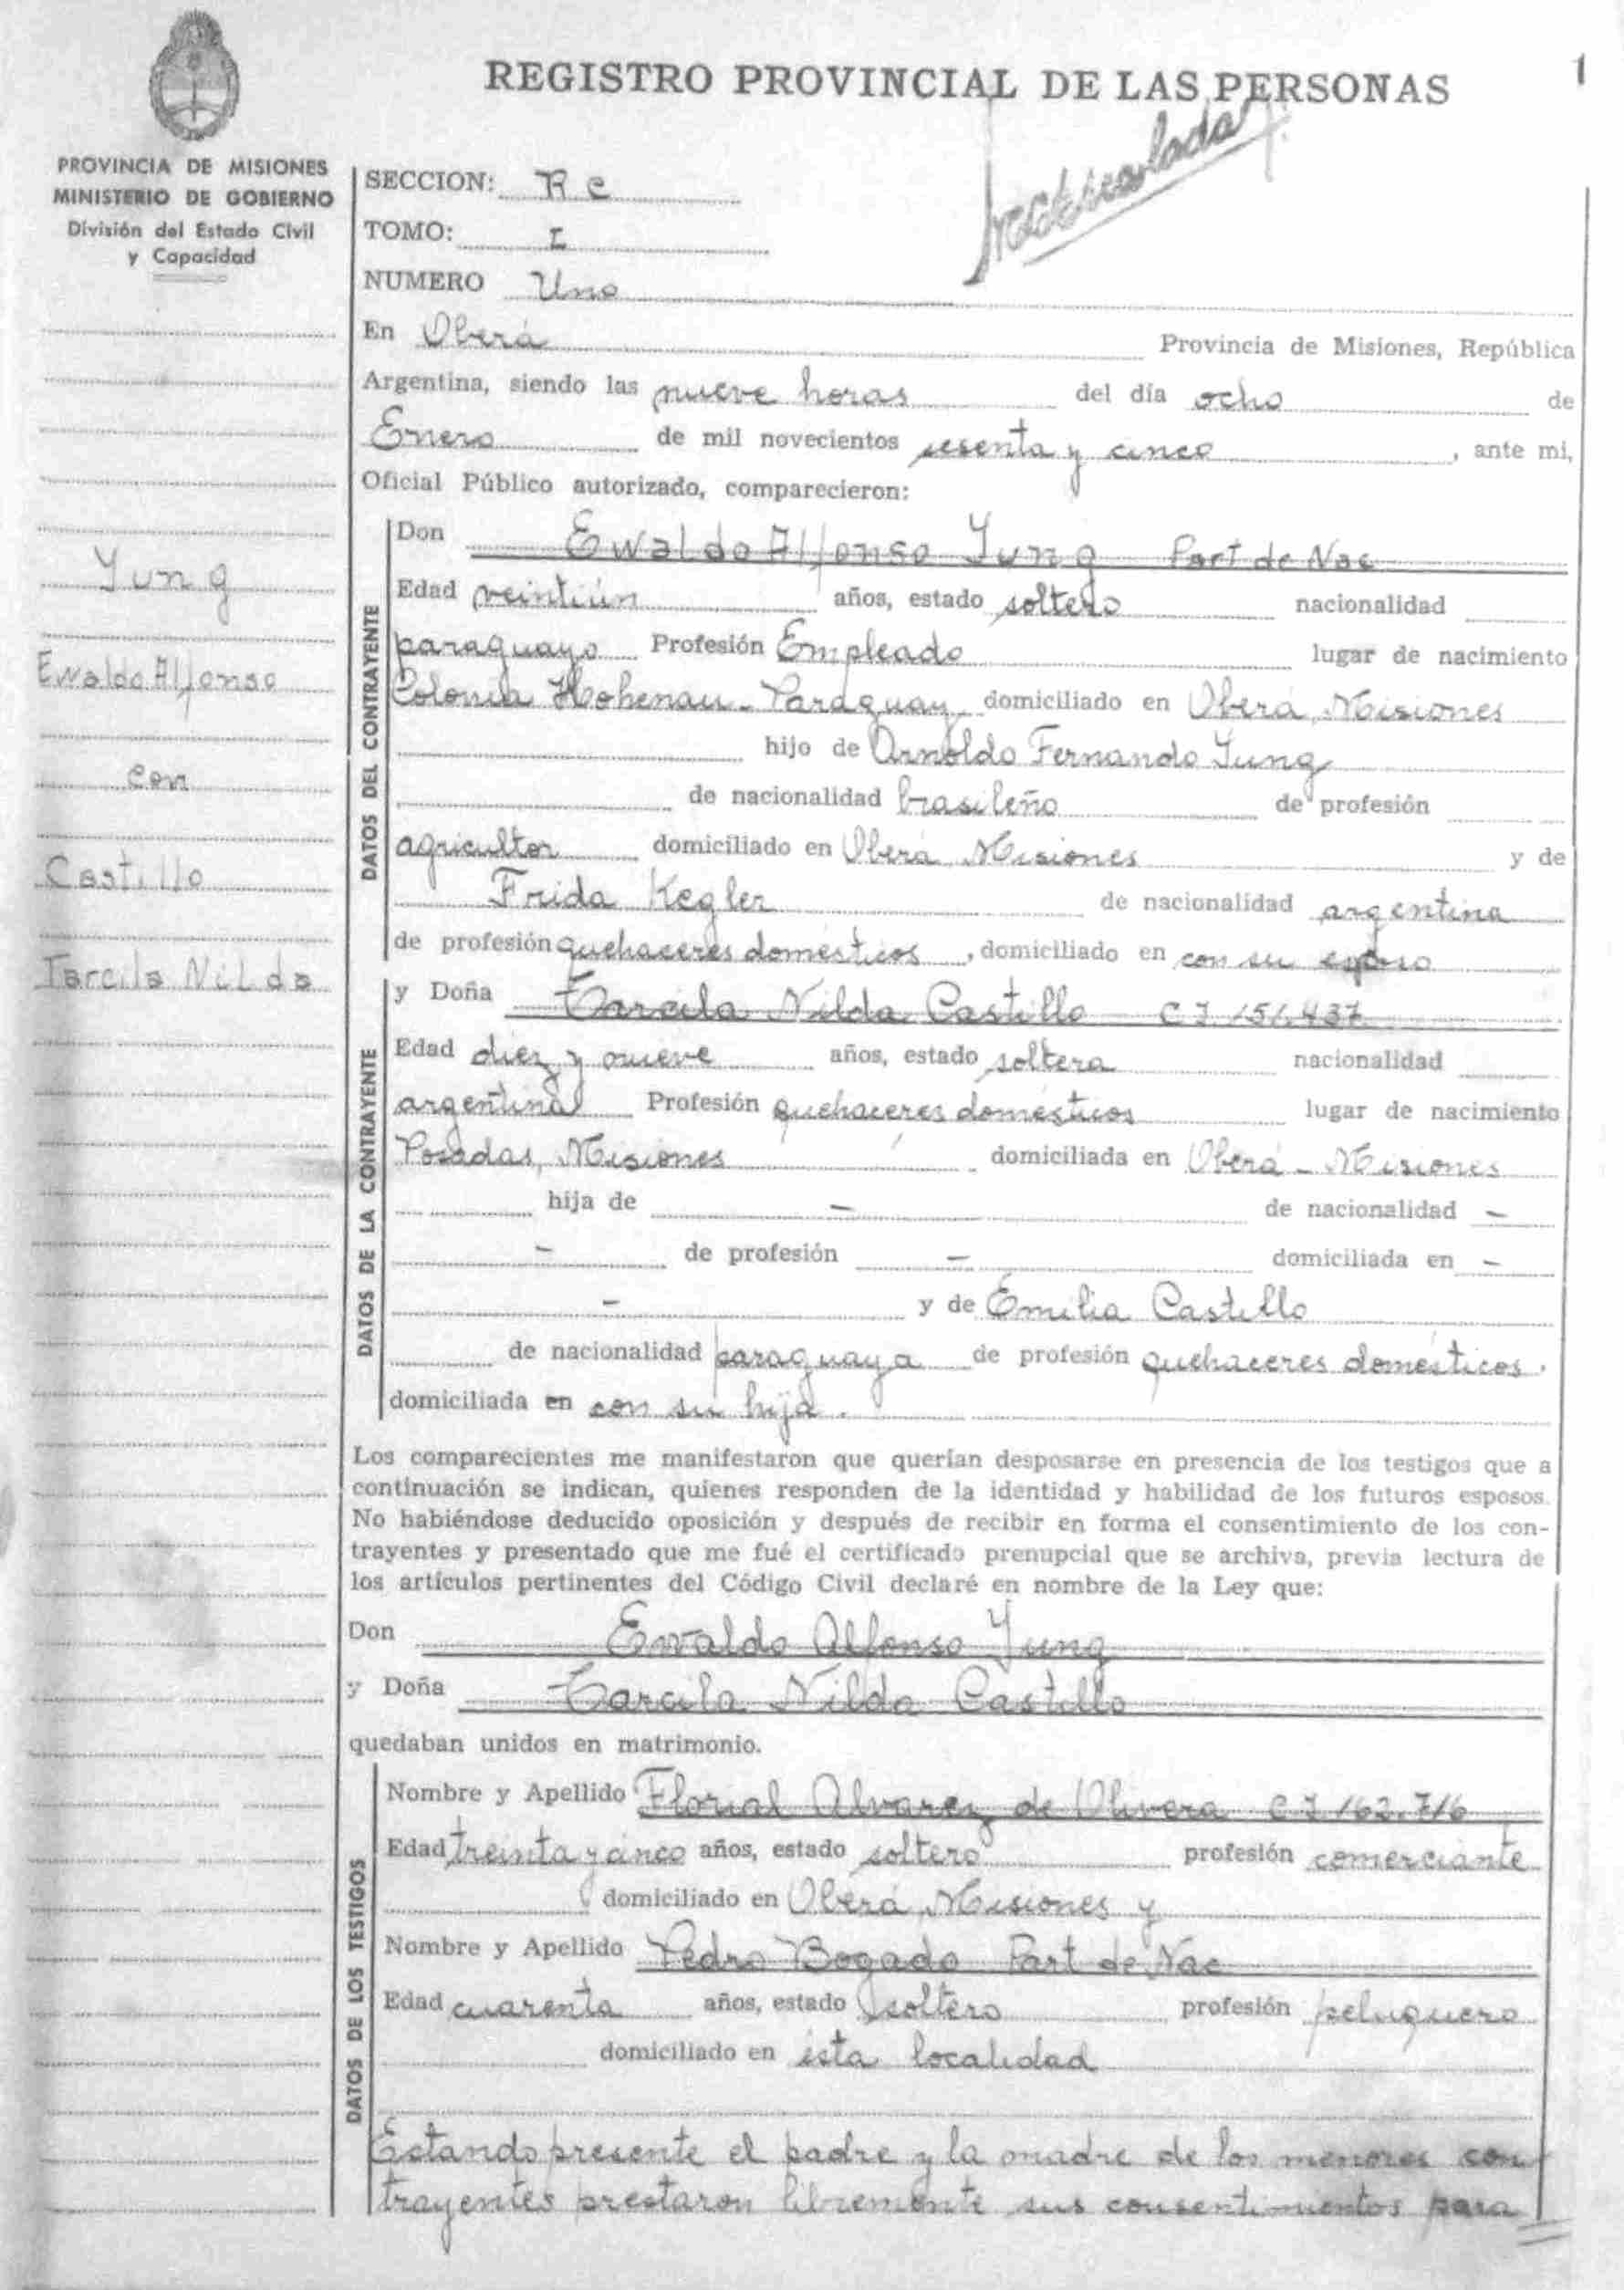 REGISTRO PROVINCIAL DE LAS PERSONAS
1
PROVINCIA DE MISIONES
MINISTERIO DE GOBIERNO
División del Estado Civil
y Capacidad
SECCION: R C
TOMO: I
NUMERO Uno
En Oberá Provincia de Misiones, República
Argentina, siendo las nueve horas del día ocho de
Enero de mil novecientos sesenta y cinco, ante mi,
Oficial Público autorizado, comparecieron:
Yung
Ewaldo Alfonso
con
Castillo
Tarcila Nilda
DATOS DEL CONTRAYENTE
Don Ewaldo Alfonso Yung Part de Nac
Edad veintiún años, estado soltero nacionalidad
paraguayo Profesión Empleado lugar de nacimiento
Colonia Hohenau - Paraguay domiciliado en Oberá, Misiones
hijo de Arnoldo Fernando Yung
de nacionalidad brasileño de profesión
agricultor domiciliado en Oberá Misiones y de
Frida Kegler de nacionalidad argentina
de profesión quehaceres domésticos, domiciliado en con su esposo
DATOS DE LA CONTRAYENTE
y Doña Tarcila Nilda Castillo C I 151.437
Edad diez y nueve años, estado soltera nacionalidad
argentina Profesión quehaceres domésticos lugar de nacimiento
Posadas, Misiones domiciliada en Oberá - Misiones
hija de - de nacionalidad -
- de profesión - domiciliada en -
- y de Emilia Castillo
de nacionalidad paraguaya de profesión quehaceres domésticos.
domiciliada en con su hija.
Los comparecientes me manifestaron que querían desposarse en presencia de los testigos que a
continuación se indican, quienes responden de la identidad y habilidad de los futuros esposos.
No habiéndose deducido oposición y después de recibir en forma el consentimiento de los con-
trayentes y presentado que me fué el certificado prenupcial que se archiva, previa lectura de
los artículos pertinentes del Código Civil declaré en nombre de la Ley que:
Don Ewaldo Alfonso Yung
y Doña Tarcila Nilda Castillo
quedaban unidos en matrimonio.
DATOS DE LOS TESTIGOS
Nombre y Apellido Florial Alvarez de Olivera C I 162.716
Edad treinta y cinco años, estado soltero profesión comerciante
domiciliado en Oberá, Misiones y
Nombre y Apellido Pedro Bogado Part de Nac
Edad cuarenta años, estado soltero profesión peluquero
domiciliado en ésta localidad
Estando presente el padre y la madre de los menores con
trayentes prestaron libremente sus consentimientos para